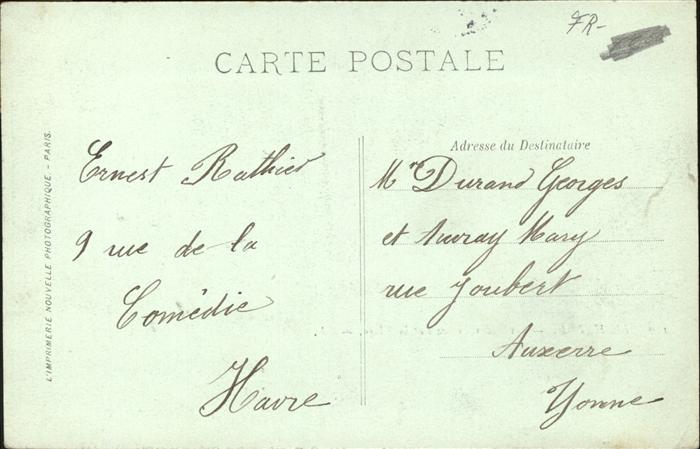 FR-
CARTE POSTALE
Adresse du Destinataire
Ernest Rathier
9 rue de la
Comédie
Havre
Mr Durand Georges
et Auray Mary
rue Joubert
Auxerre
Yonne
L'IMPRIMERIE NOUVELLE PHOTOGRAPHIQUE - PARIS.